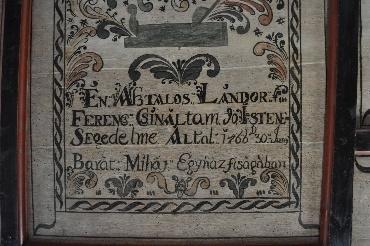 En Aztalos Lándor
Ferenc: Cináltam Jó Isten
Segedelme Által: 1766
Barát: Mihál Egyház fiságában